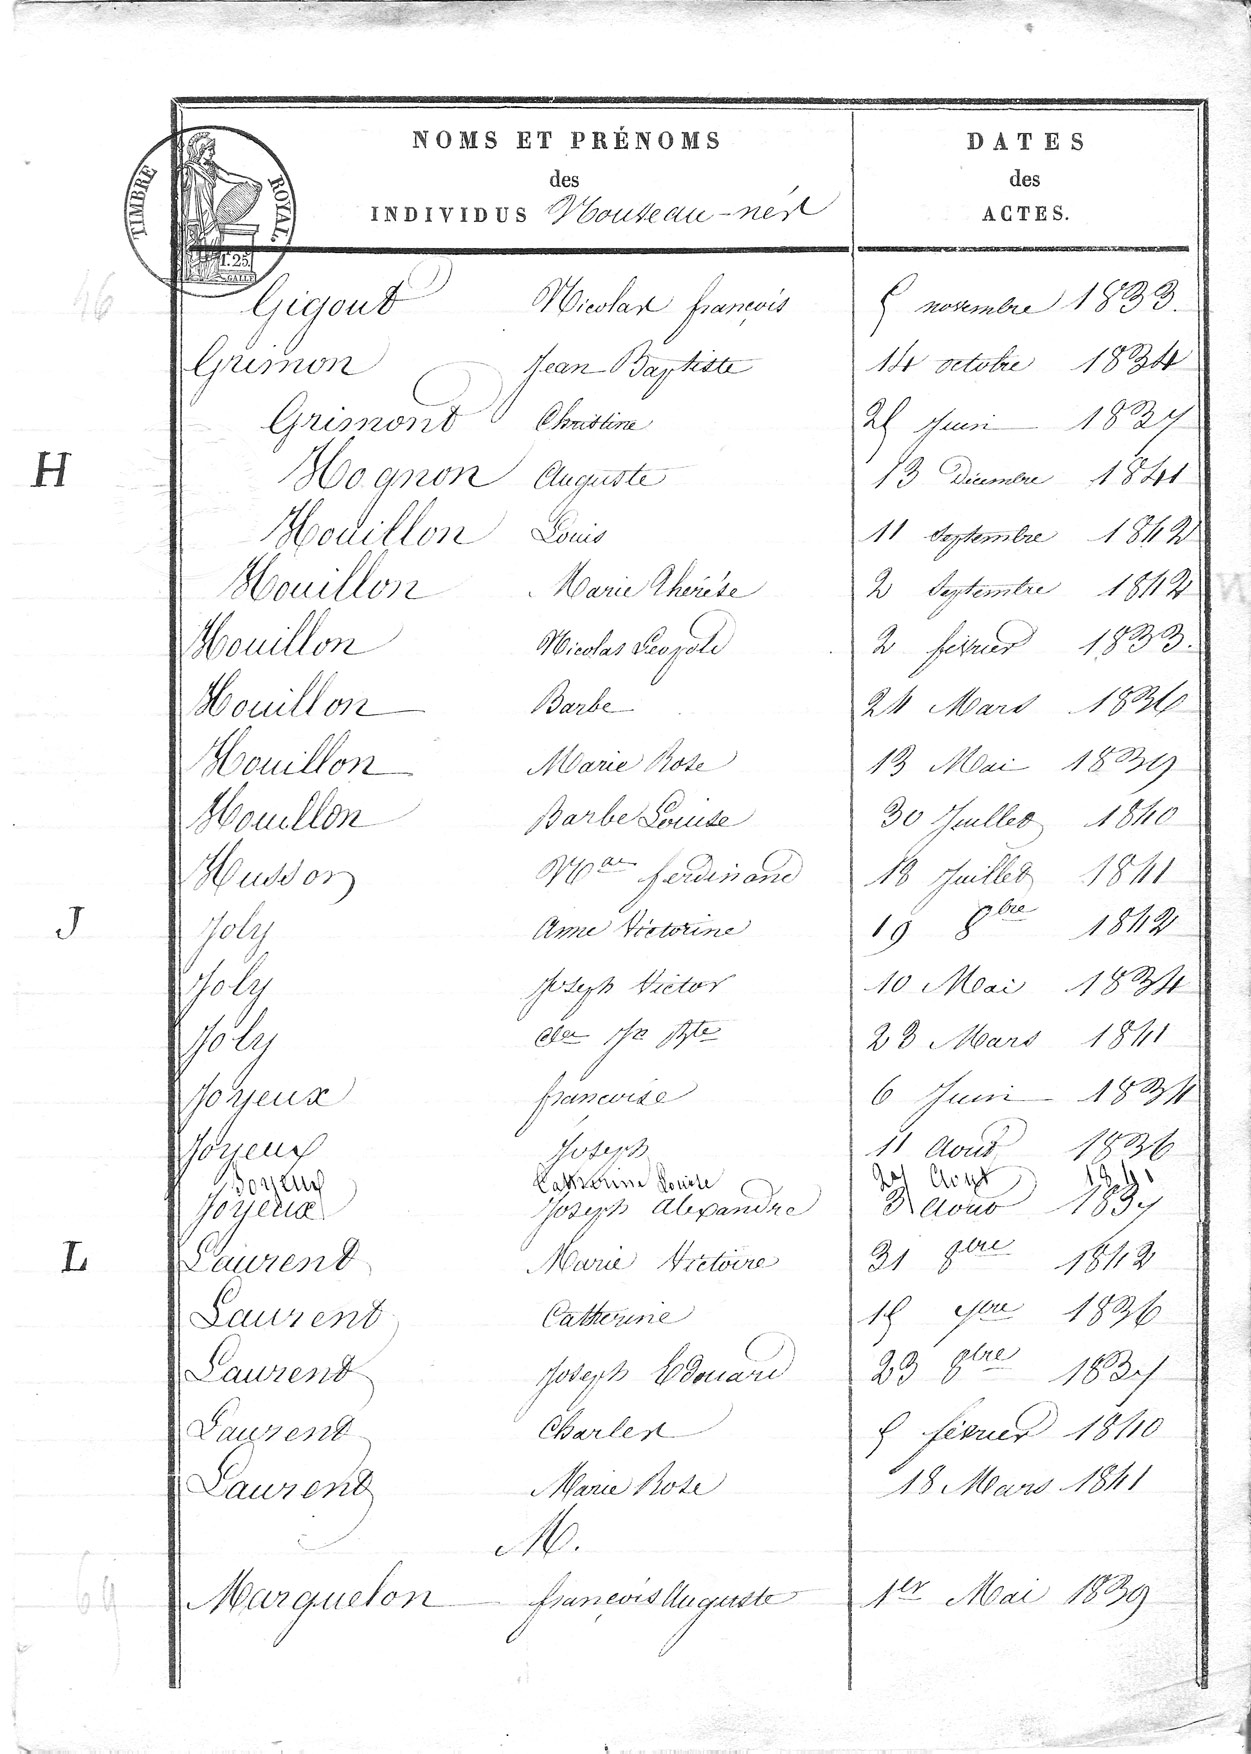 NOMS ET PRÉNOMS
DATES
des
des
INDIVIDUS Nouveau-nés
ACTES.
TIMBRE ROYAL.
1F. 25.
46
Gigout Nicolas françois 5 novembre 1833.
Grimon Jean Baptiste 14 octobre 1834
Grimont Christine 25 Juin 1837
H Hognon Auguste 13 Décembre 1841
Houillon Louis 11 septembre 1842
Houillon Marie Thérèse 2 septembre 1842
Houillon Nicolas Leopold 2 février 1833.
Houillon Barbe 24 Mars 1836
Houillon Marie Rose 13 Mai 1839
Houillon Barbe Louise 30 Juillet 1840
Husson Nas ferdinand 18 Juillet 1841
J Joly Anne Victorine 19 8bre 1842
Joly Joseph Victor 10 Mai 1834
Joly Jn Bte 23 Mars 1841
Joyeux françoise 6 Juin 1834
Joyeux Joseph 11 Aout 1836
Joyeux Catherine Louise 27 Aout 1841
Joyeux Joseph Alexandre 31 Aout 1837
L Laurent Marie Victoire 31 1842
Laurent Catherine 15 1836
Laurent Joseph Edouard 23 8bre 1837
Laurent Charles 5 février 1840
Laurent Marie Rose 18 Mars 1841
M.
69
Marquelon françois Auguste 1er Mai 1839